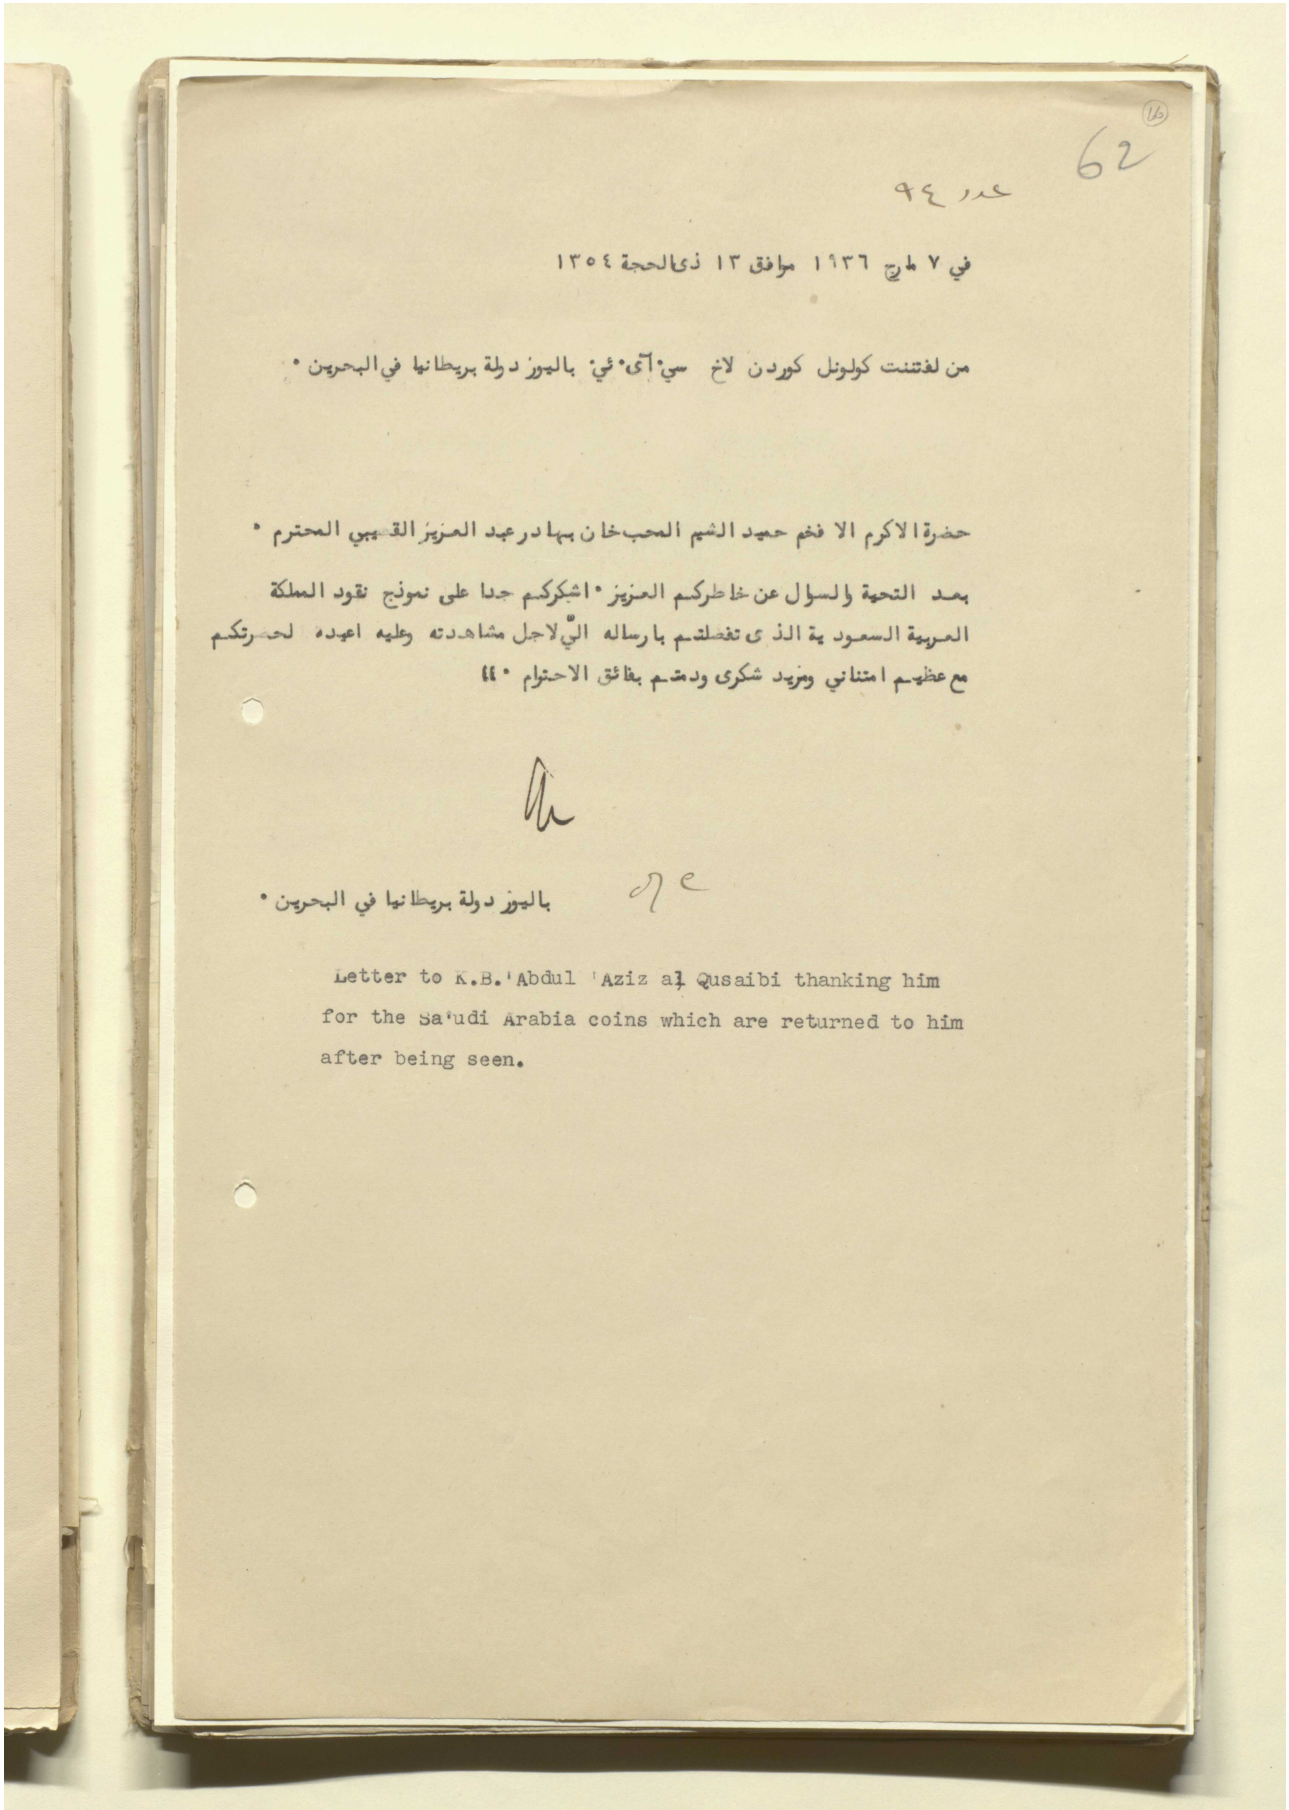 62
عدد ٩٤
في ٧ مارج ١٩٣٦ موافق ١٣ ذى الحجة ١٣٥٤
من لفتننت كولونل كوردن لاخ سي٠ آى٠ ئي٠ باليوز دولة بريطانيا في البحرين ٠
حضرة الاكرم الافخم حميد الشيم المحب خان بهادر عبد العزيز القصيبي المحترم ٠
بعد التحية والسوال عن خاطركم العزيز ٠ اشكركم جدا على نموذج نقود المملكة
العربية السعودية الذى تفضلتم بارساله اليّ لاجل مشاهدته وعليه اعيده لحضرتكم
مع عظيم امتناني ومزيد شكرى ودمتم بفائق الاحترام ٠ ،،
باليوز دولة بريطانيا في البحرين ٠
Letter to K.B.'Abdul 'Aziz al Qusaibi thanking him
for the Sa'udi Arabia coins which are returned to him
after being seen.